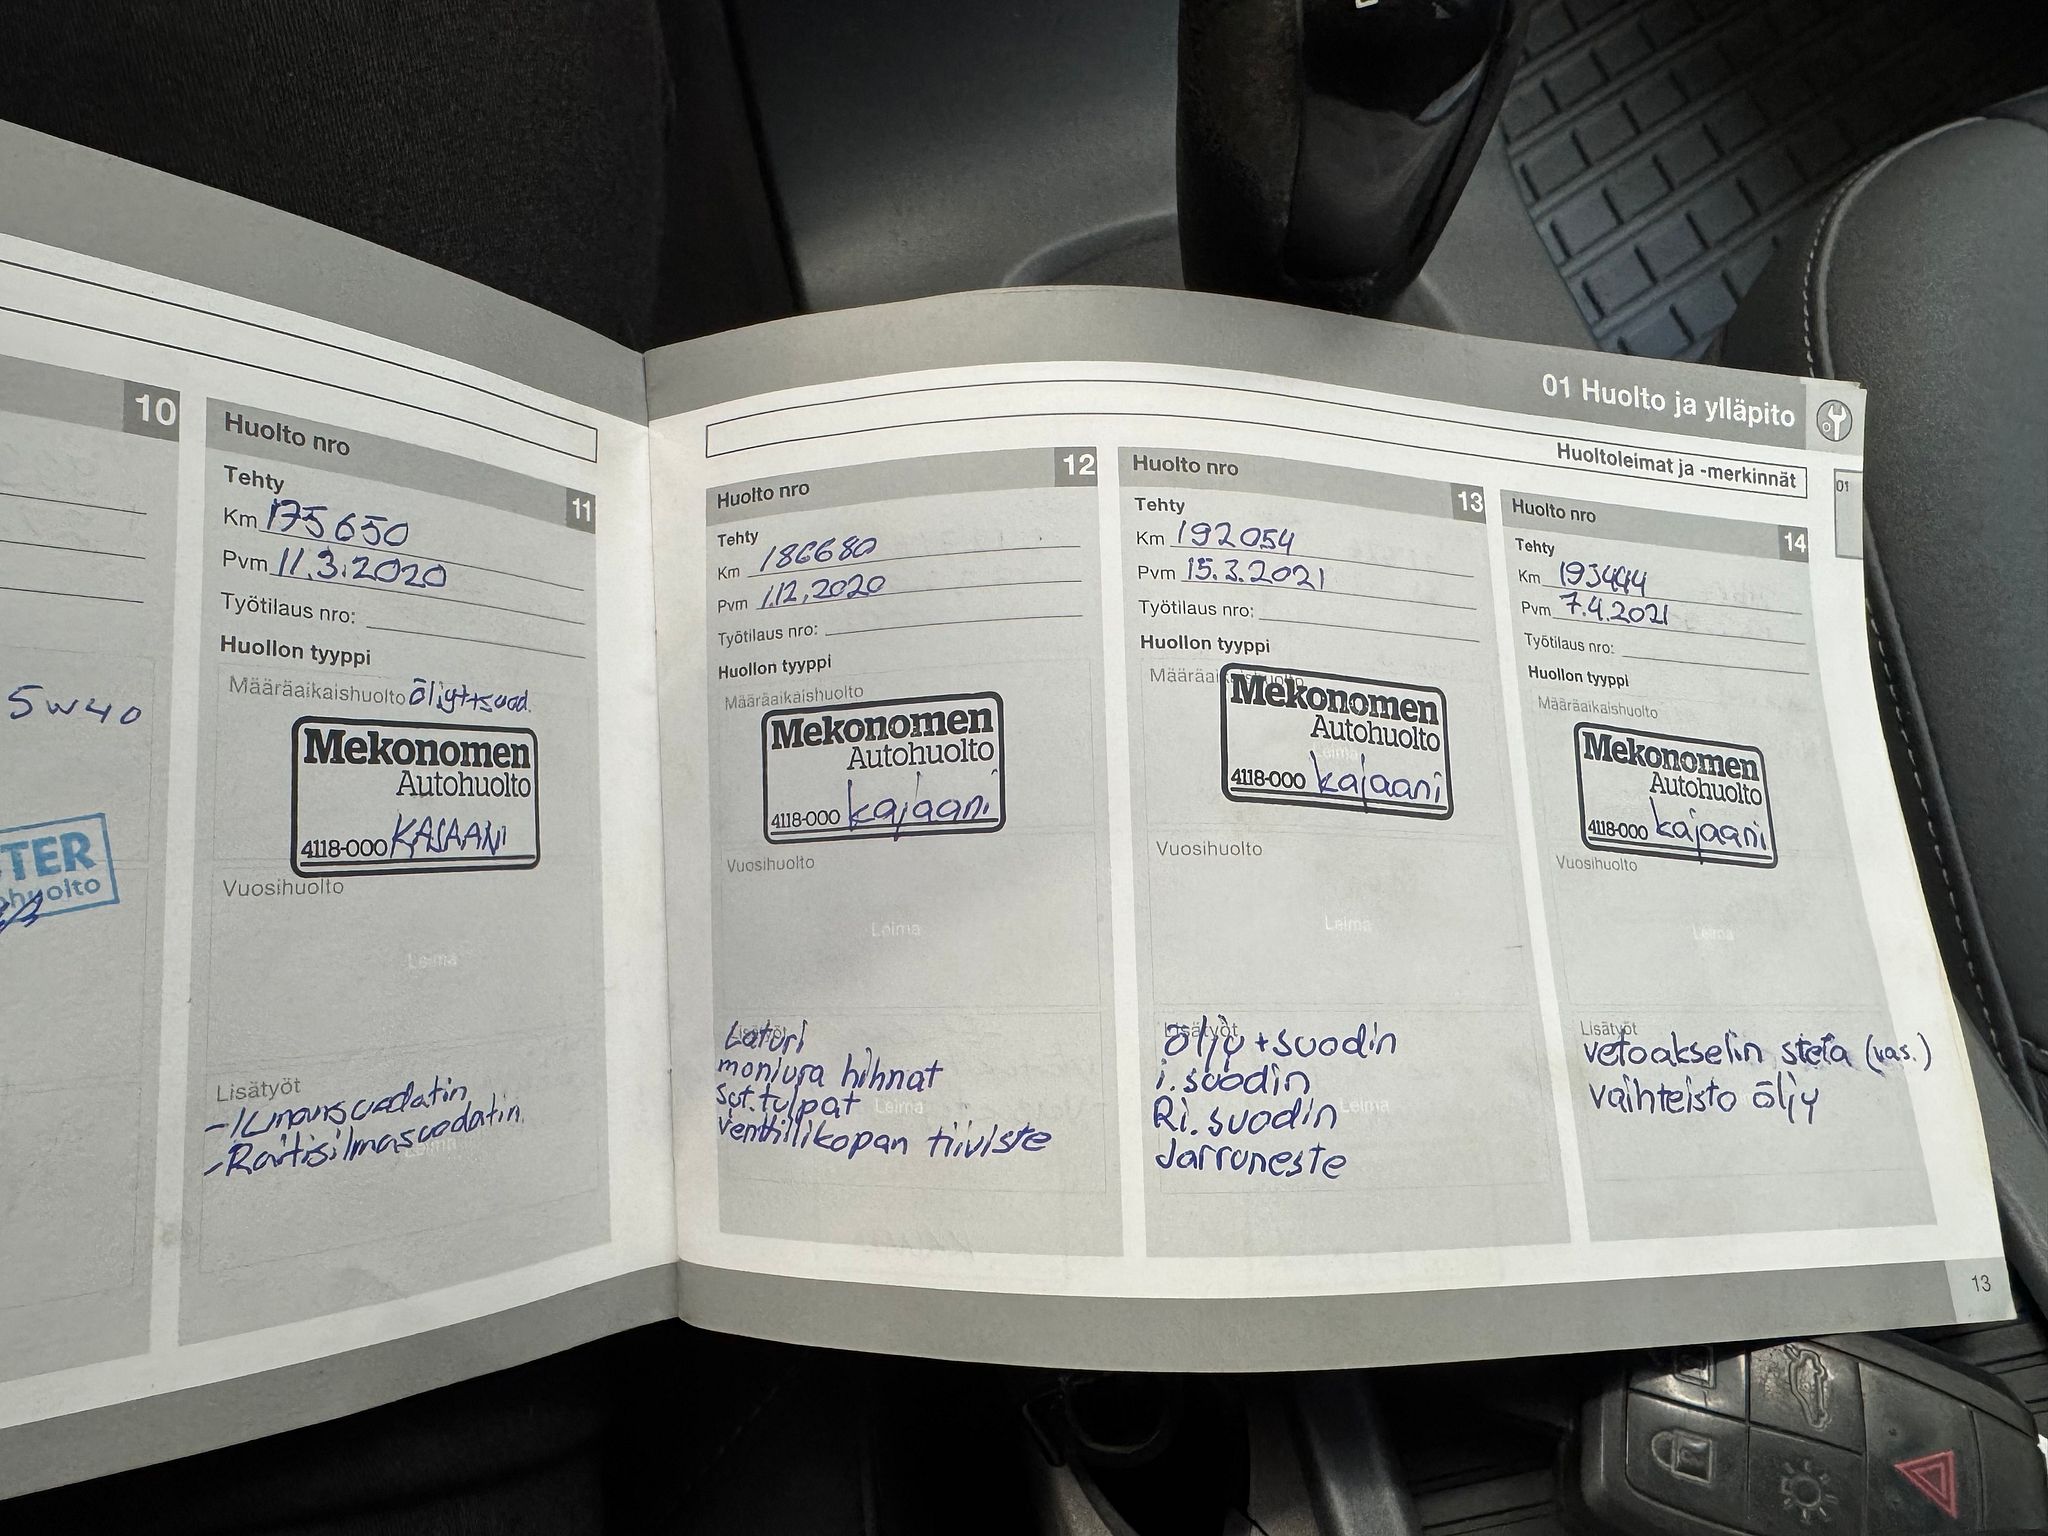 01 Huolto ja ylläpito
Huoltoleimat ja -merkinnät
01
10
5W40
TER
huolto
Huolto nro 11
Tehty
Km 175650
Pvm 11.3.2020
Työtilaus nro:
Huollon tyyppi
Määräaikaishuolto öljyt+suod.
Mekonomen
Autohuolto
4118-000 KAJAANI
Vuosihuolto
Leima
Lisätyöt
-Ilmansuodatin
-Raitisilmasuodatin
Huolto nro 12
Tehty
Km 186680
Pvm 1.12.2020
Työtilaus nro:
Huollon tyyppi
Määräaikaishuolto
Mekonomen
Autohuolto
4118-000 kajaani
Vuosihuolto
Leima
Lisätyöt
Laturi
moniura hihnat
syt.tulpat
Leima
venttiilikopan tiiviste
Huolto nro 13
Tehty
Km 192054
Pvm 15.3.2021
Työtilaus nro:
Huollon tyyppi
Määräaikaishuolto
Mekonomen
Autohuolto
Leima
4118-000 kajaani
Vuosihuolto
Leima
Lisätyöt
öljy + suodin
i. suodin
Leima
Ri. suodin
Jarruneste
Huolto nro 14
Tehty
Km 193444
Pvm 7.4.2021
Työtilaus nro:
Huollon tyyppi
Määräaikaishuolto
Mekonomen
Autohuolto
4118-000 kajaani
Vuosihuolto
Leima
Lisätyöt
vetoakselin stefa (vas.)
vaihteisto öljy
13